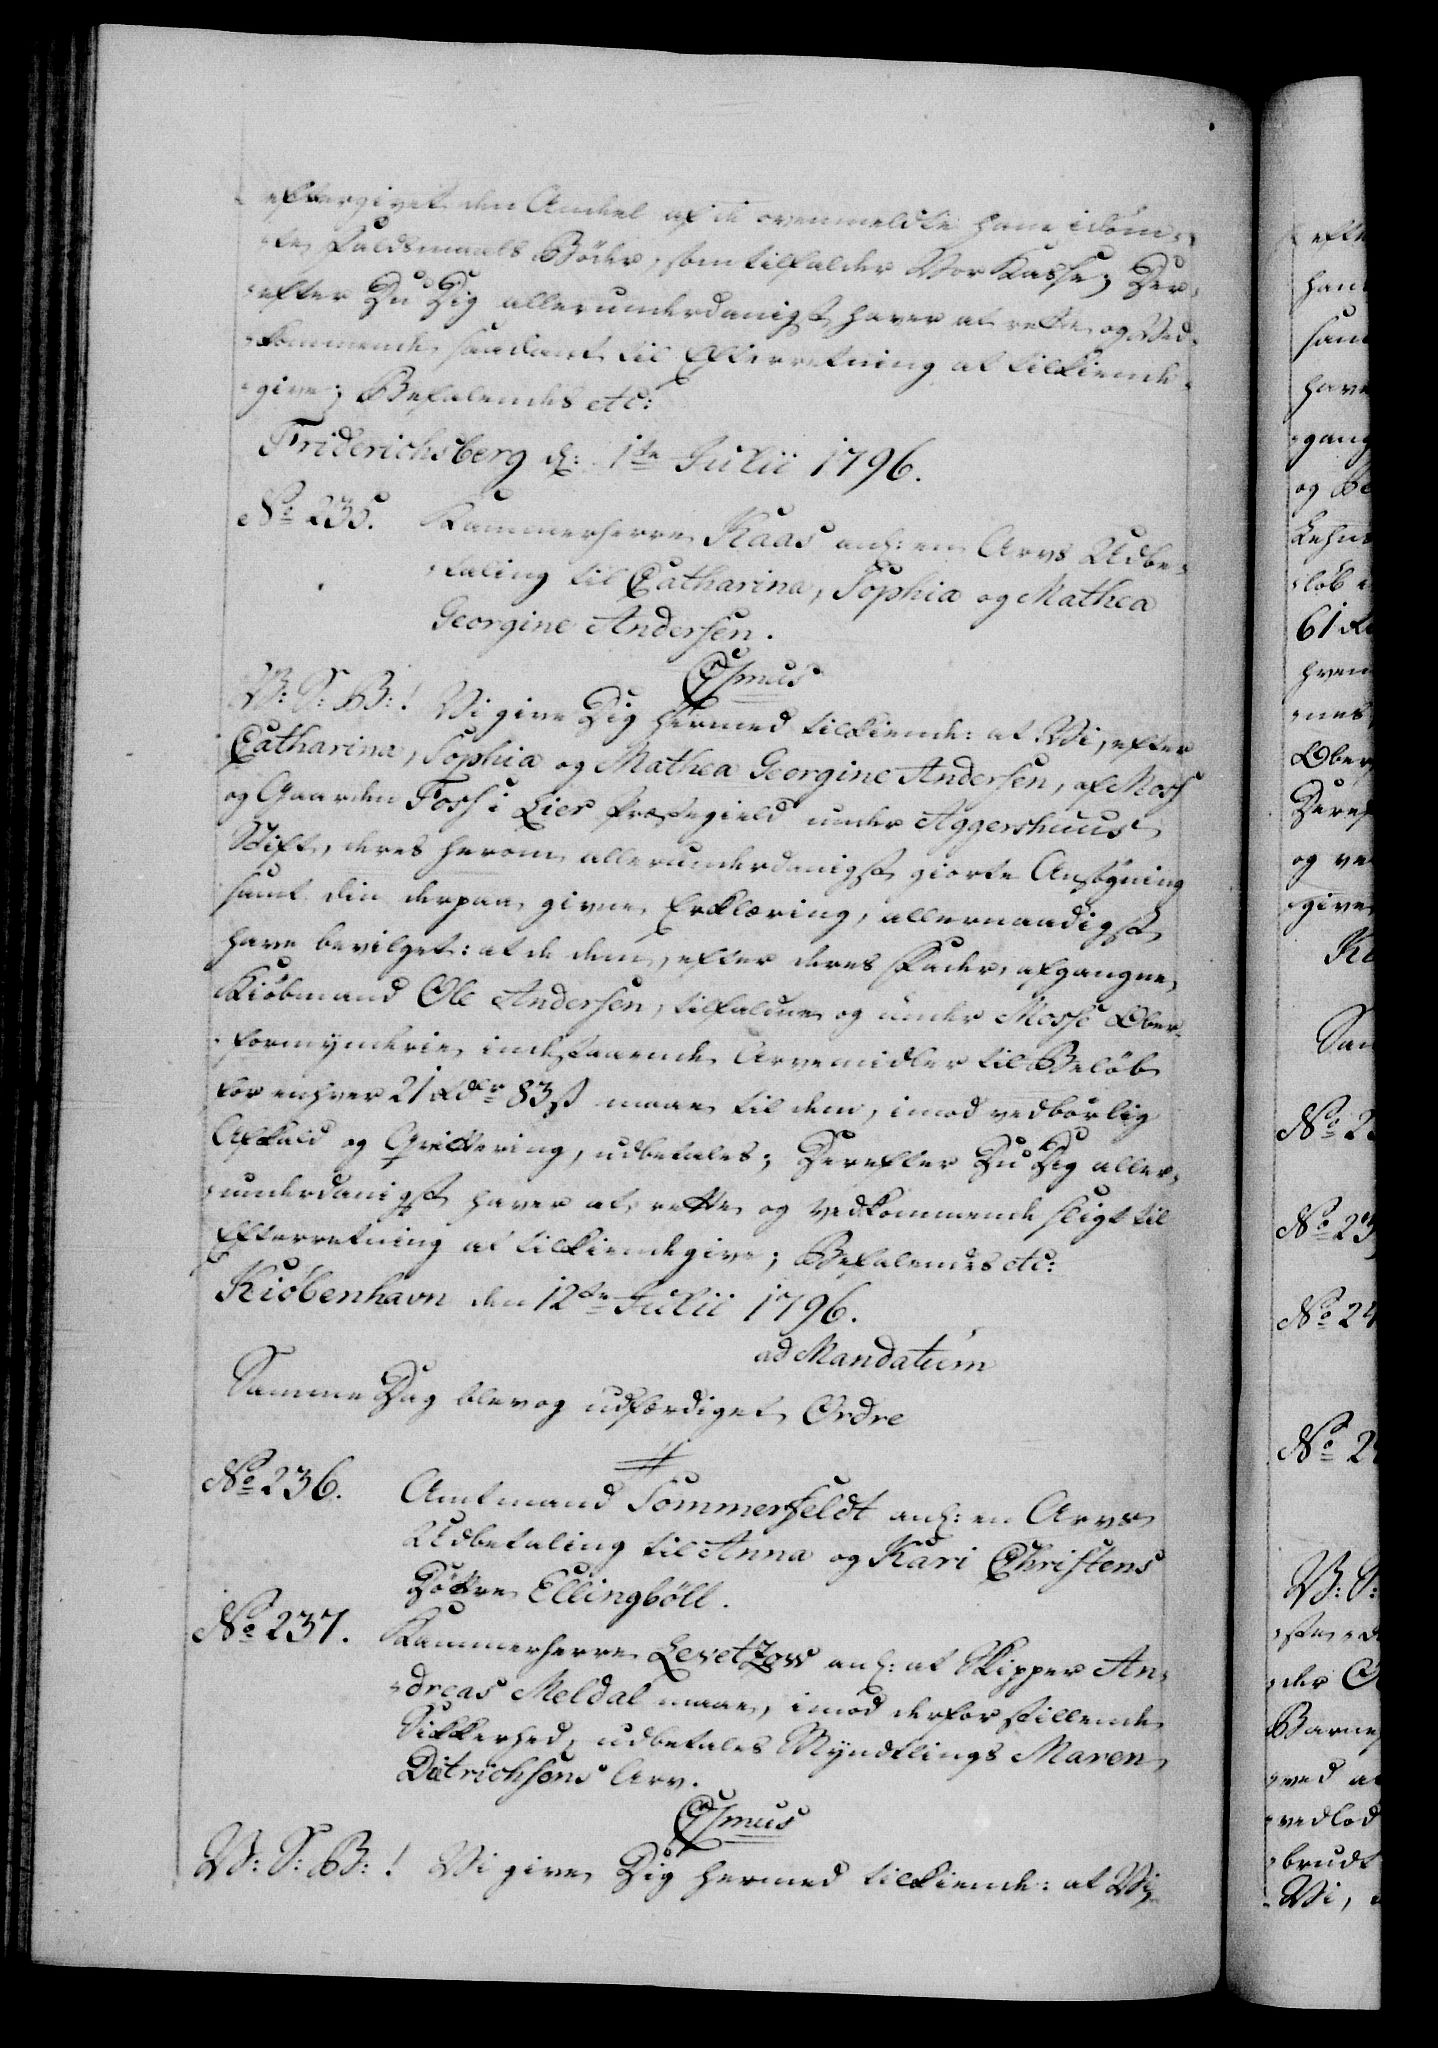 eftergivet den Andeel af de ovenmeldte ham idöm-
-te Faldsmaals Böder, som tilfalder Vor Kasse; Der-
-efter Du Dig allerunderdanigst haver at rette og Ved-
-kommende saadant til Efterretning at tilkiende-
-give; Befalendes etc:
Friderichsberg d: 1te Julii 1796.
No 235. Kammerherre Kaas anl: en Arvs Udbe-
-taling til Catharina, Sophia og Mathea
Georgine Andersen.
C7mus
V: S: B:! Vi give Dig hermed tilkiende: at Vi, efter
Catharina, Sophia og Mathea Georgine Andersen, af Moss
og Gaarden Foss i Lier Præstegield under Aggershuus
Stift, deres herom allerunderdanigst giorte Ansögning
samt din derpaa givne Erklæring, allernaadigst
have bevilget: at de dem, efter deres Fader, afgangne
Kiöbmand Ole Andersen, tilfaldne og under Mosse Ober-
-formynderie indestaaende Arvemidler til Belöb
for enhver 21 Rdlr 83 s maae til dem, imod vedbörlig
Afkald og Qvittering, udbetales; Derefter Du Dig aller-
-underdanigst haver at rette og vedkommende sligt til
Efterretning at tilkiendegive; Befalendes etc:
Kiöbenhavn den 12te Julii 1796.
ad Mandatum
Samme Dag blev og udfærdiget Ordre
No 236. Amtmand Sommerfeldt anl: en Arvs
Udbetaling til Anna og Kari Christens
Döttre Ellingböll.
No 237. Kammerherre Levetzow anl: at Skipper An-
-dreas Meldal maae, imod derfor stillende
Sikkerhed, udbetales Myndtlings Maren
Ditrichsens Arv.
C7mus
V: S: B:! Vi give Dig hermed tilkiende: at Vi,